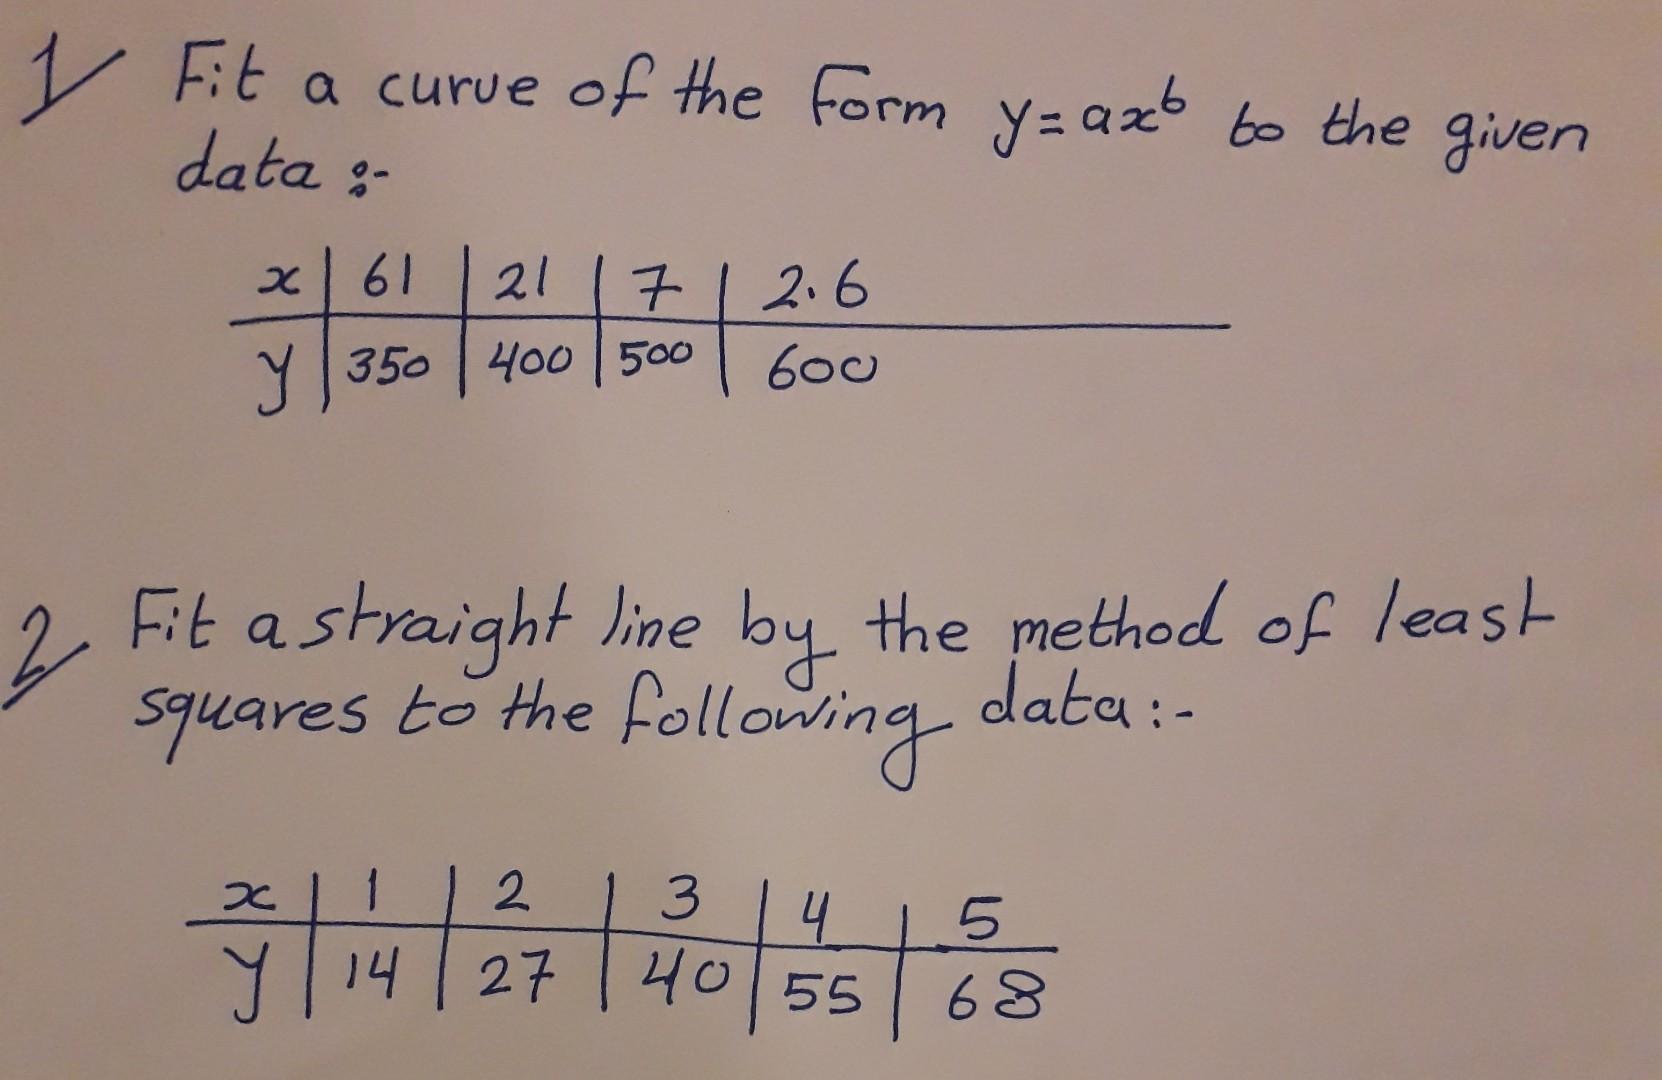 1/ Fit a curve of the form y=ax^b to the given
data :-
x | 61 | 21 | 7 | 2.6
y | 350 | 400 | 500 | 600
2/ Fit a straight line by the method of least
squares to the following data :-
x | 1 | 2 | 3 | 4 | 5
y | 14 | 27 | 40 | 55 | 68